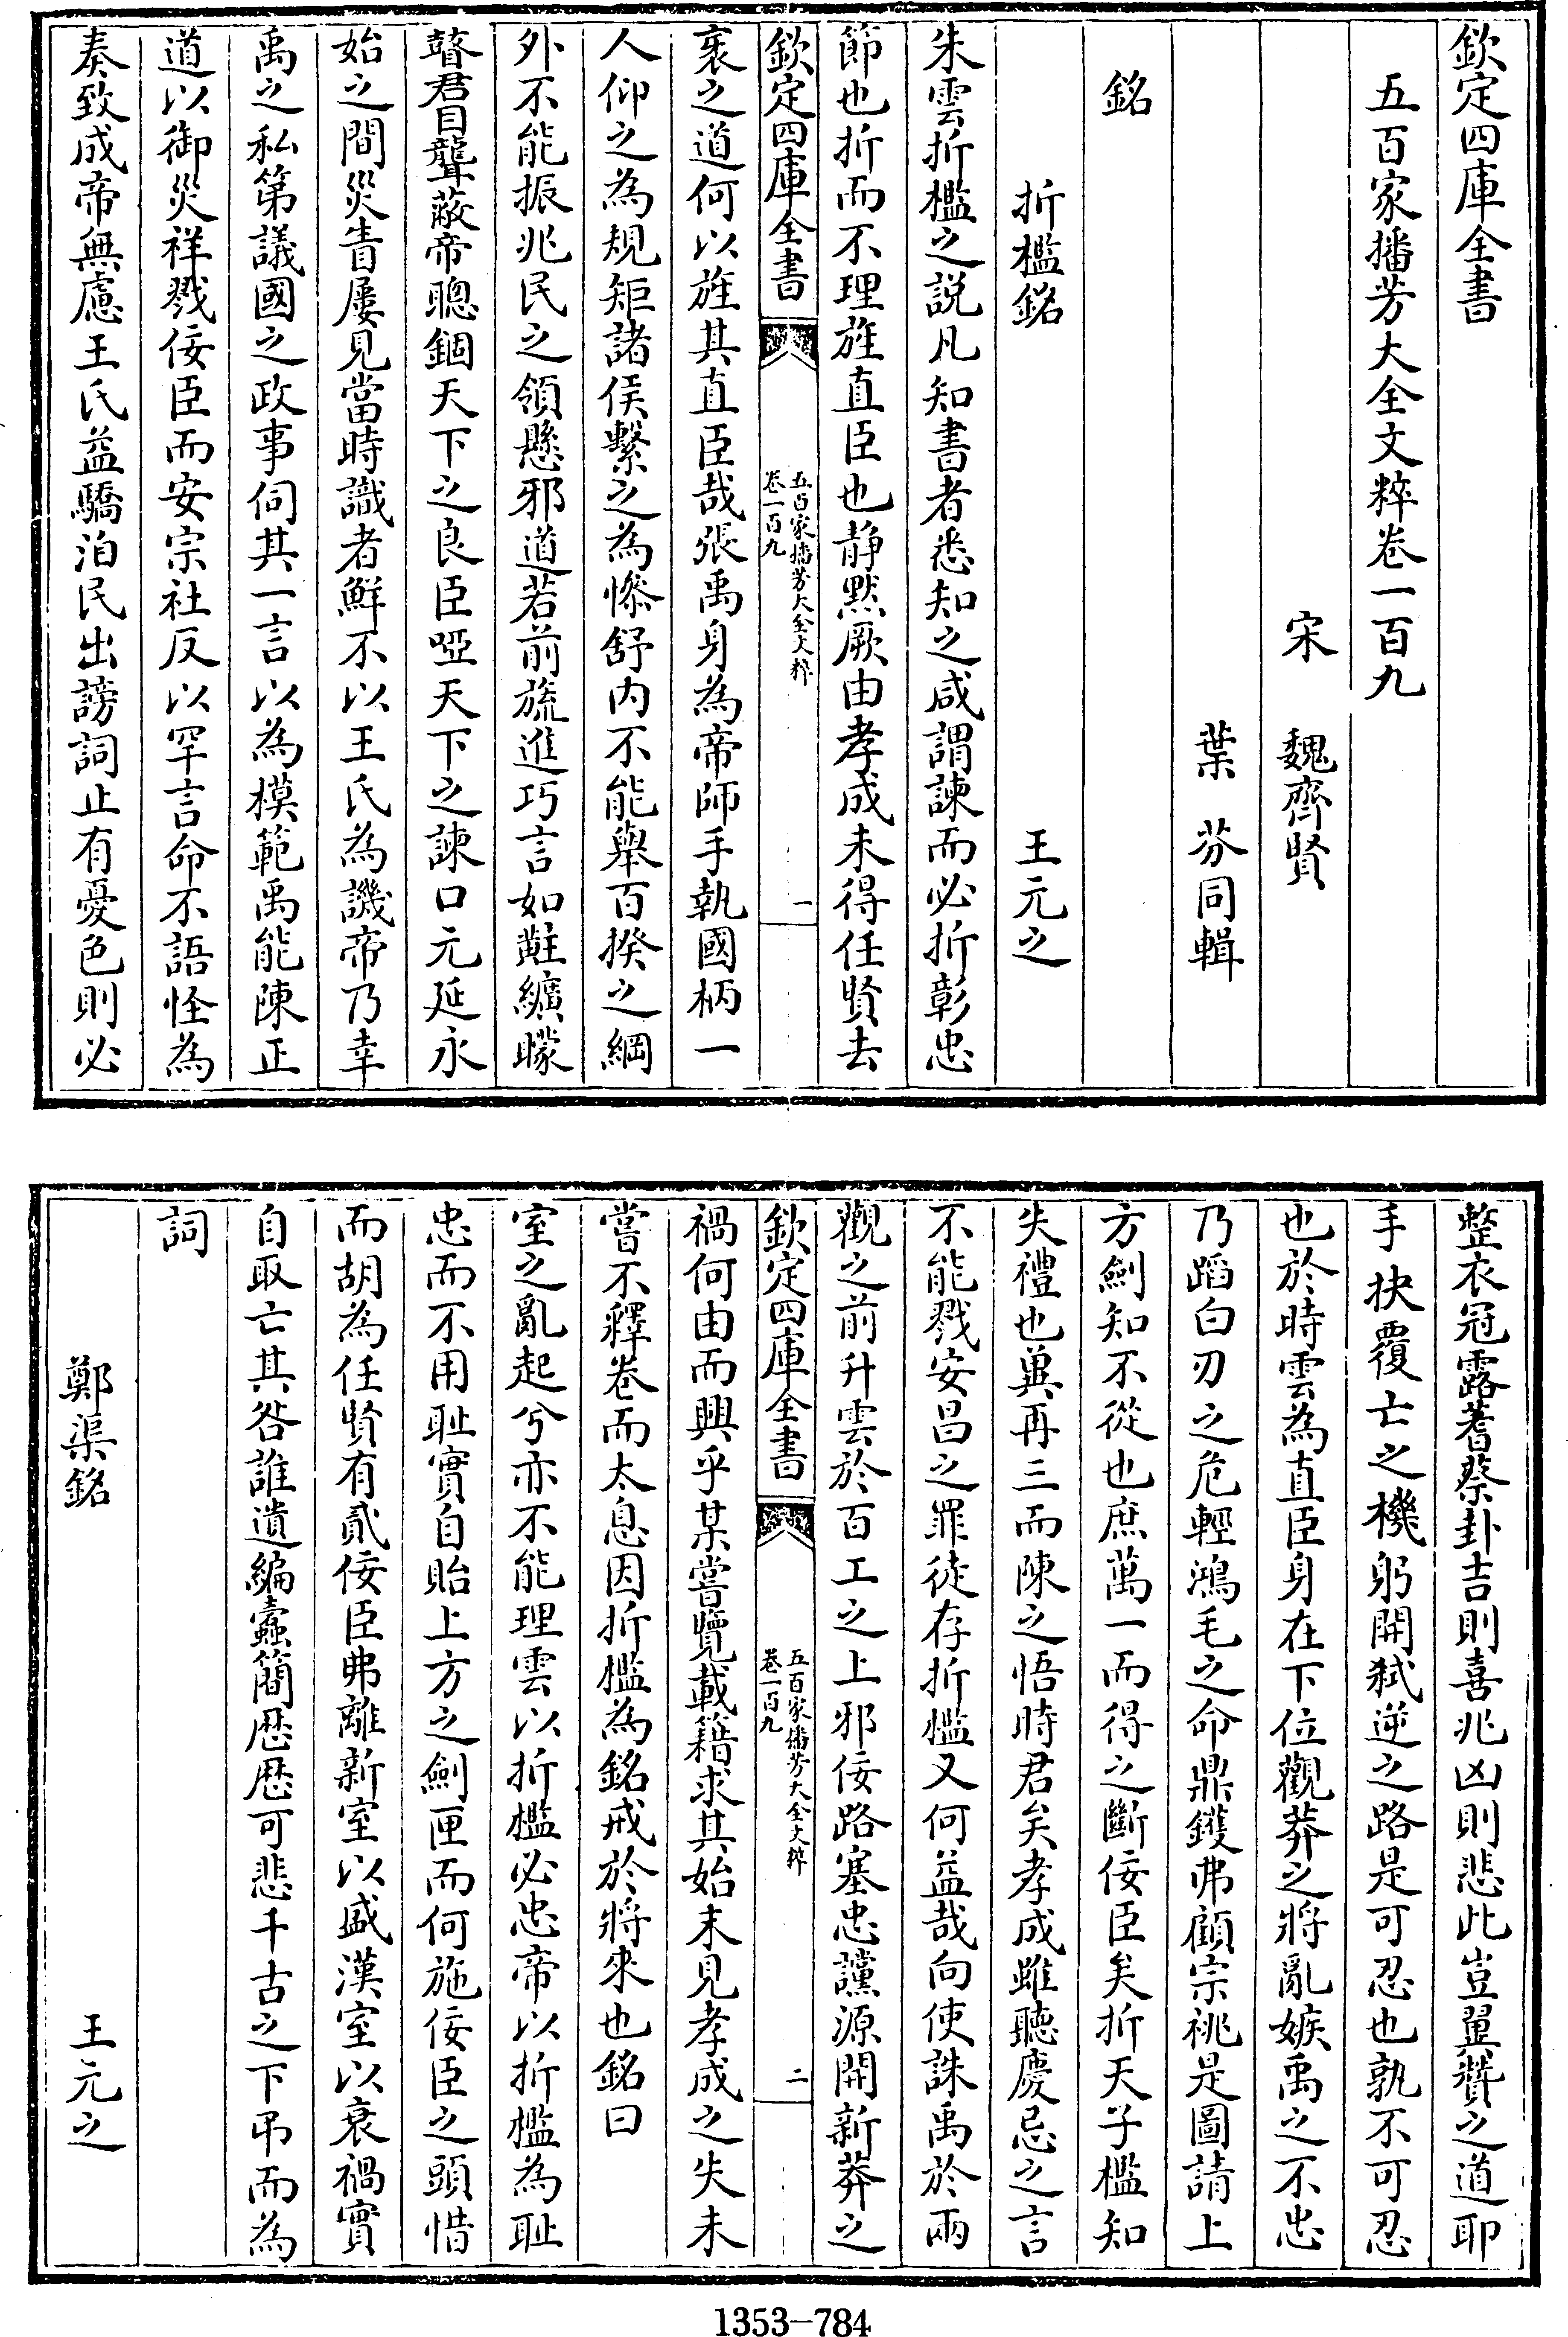 欽定四庫全書
五百家播芳大全文粹卷一百九
宋　魏齊賢
葉　棻同輯
銘
折檻銘　王元之
朱雲折檻之説凡知書者悉知之咸謂諫而必折彰忠
節也折而不理旌直臣也静黙厥由孝成未得任賢去
欽定四庫全書
五百家播芳大全文粹
卷一百九
一
衺之道何以旌其直臣哉張禹身為帝師手執國柄一
人仰之為規矩諸侯繫之為慘舒内不能舉百揆之綱
外不能振兆民之領懸邪道若前旒進巧言如黈纊矇
瞽君目聾蔽帝聰錮天下之良臣啞天下之諫口元延永
始之間災眚屢見當時識者鮮不以王氏為譏帝乃幸
禹之私第議國之政事伺其一言以為模範禹能陳正
道以御災祥戮佞臣而安宗社反以罕言命不語怪為
奏致成帝無慮王氏益驕洎民出謗詞止有憂色則必
整衣冠露蓍蔡卦吉則喜兆凶則悲此豈翼贊之道耶
手抉覆亡之機躬開弑逆之路是可忍也孰不可忍
也於時雲為直臣身在下位觀莽之將亂嫉禹之不忠
乃蹈白刃之危輕鴻毛之命鼎鑊弗顧宗祧是圖請上
方劍知不從也庶萬一而得之斷佞臣矣折天子檻知
失禮也冀再三而陳之悟時君矣孝成雖聽慶忌之言
不能戮安昌之罪徒存折檻又何益哉向使誅禹於兩
觀之前升雲於百工之上邪佞路塞忠讜源開新莽之
欽定四庫全書
五百家播芳大全文粹
卷一百九
二
禍何由而興乎某嘗覽載籍求其始末見孝成之失未
嘗不釋卷而太息因折檻為銘戒於將來也銘曰
室之亂起兮亦不能理雲以折檻必忠帝以折檻為恥
忠而不用耻實自貽上方之劍匣而何施佞臣之頭惜
而胡為任賢有貳佞臣弗離新室以盛漢室以衰禍實
自取亡其咎誰遺編蠹簡歴歴可悲千古之下弔而為
詞
鄭渠銘　王元之
1353—784